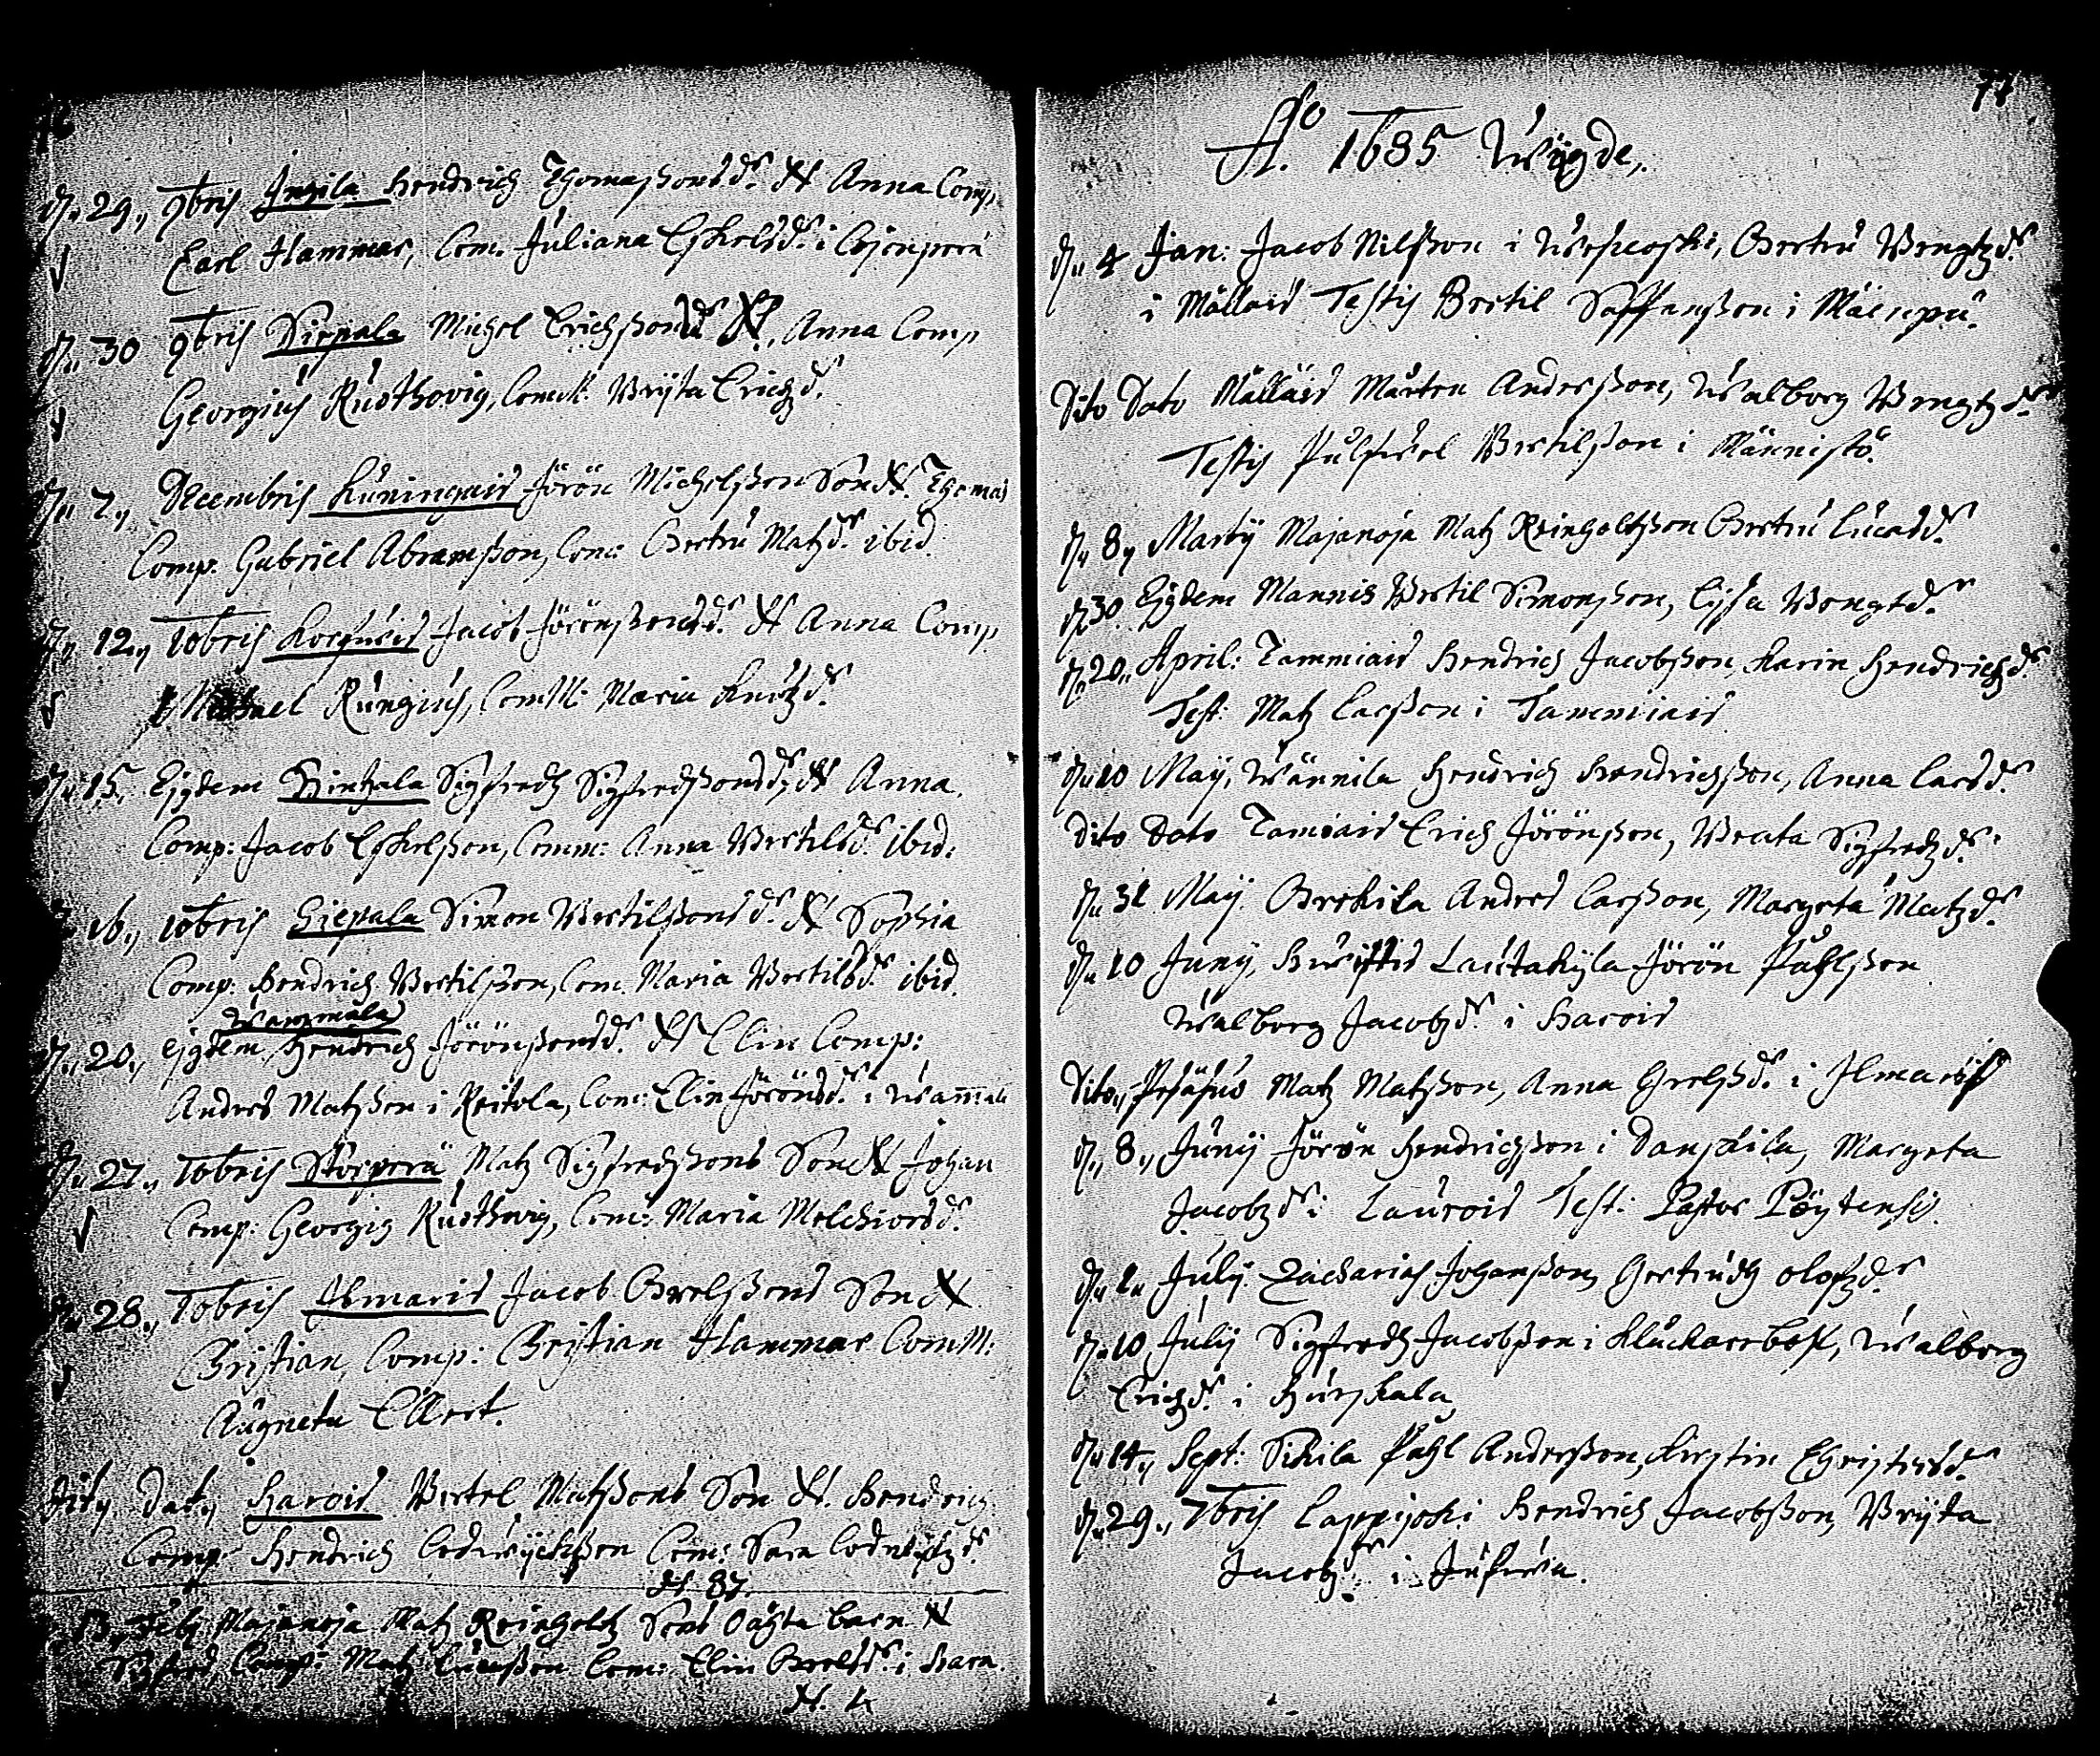 d. 29, 9bris Jngila Hendrich Thomaßons d. N Anna Comp.
Carl Hammar, Com. Juliana Eskelsd. i
d. 30 9bris Siepala Michel Erichßons d. N. Anna Comp
Georgius Rudthovig, Com: Bryta Erichzd.
d. 7, Decembris Kuningais Jörön Michelßon Son N. Thomas
Comp: Gabriel Abramßon, Com: Gertru Matzd. ibid.
d. 12, 10bris Jacob Jörönßons d. N Anna Comp
Michael Rungius, Comm: Maria Knutzd.
d. 15. Ejgdem Hintzala Sigfredh Sigfredßons d. N Anna.
Comp: Jacob Eskelßon, Comm: Anna Bertilsd. ibid.
16, 10bris Siepala Simon Bertilßons d. N Sophia
Comp: Hendrich Bertilßon, Com. Maria Bertilsd. ibid.
Wammala
d. 20, ejgdem Hendrich Jörönßons d. N Elin Comp:
Anders Matzßon i Keitola, Com: Elin Jörönsd. i Wam̅ala
d. 27, 10bris Storperä Matz Sigfredßons Son N Johan
Comp: Georgig Rudthovig, Com: Maria Melchiorsd.
28, 10bris Ilmaris Jacob Grelßons Son N
Christian, Comp: Christian Hammar Comm:
Augneta Ellert.
Dito Dato Harois Bertel Matßons Son N. Hendrich
Comp: Hendrich Com: Sara
N. 87.
Majanoja Matz Reinholtz Sons oächta barn N
Sigfred, Comp: Matz Lucaßon Com: Elin Grelsd. i Hara.
N. 4
71
Ao. 1685 Wigde,
d. 4 Jan: Jacob Nilßon i Gertru Bengtzd.
i Mällais Testis Bertil Staffanßon i Mäenpä.
Dito Dato Mällais Mårten Anderßon, Walborg Bengtzd.
Testis Bertilßon i Männistö.
d. 8, Martij Majanoja Matz Reingoltßon Gertru Lucasd.
d. 30. Ejgdem Mannis Bertil Simonßon, Lijsa Bengtd.
d. 20, April: Tammiais Hendrich Jacobßon, Karin Hendrichzd.
Test: Matz Larßon i Tammiais
d. 10 Maij, Wännila Hendrich Hendrichßon, Anna Larsd.
Dito Dato Tamiais Erich Jörönßon, Beata Sigfredzd.
d. 31 Maij Grekila Anders Larßon, Margeta Matzd.
d. 10 Junij, Lautakyla Jörön Påhlßon
Walborg Jacobzd. i Harois
Dito, Matz Matßon, Anna Grelsd. i Ilmaris
d. 8, Junij Jörön Hendrichßon i Danskila, Margeta
Jacobzd. i Laurois Test: Pastor Pöytensis.
d. 2, Julij. Zacharias Johanßon, Gertrudh olofzd.
d. 10, Julij Sigfredh Jacobßon i Kluckarebohl, Walborg
Erichzd. i Hurskala,
d. 14, Sept: Sikila Påhl Anderßon, Kirstin Christersd.
d. 29, 7bris Lappijoki Hendrich Jacobßon, Bryta
Jacobzd. i Juhwa.